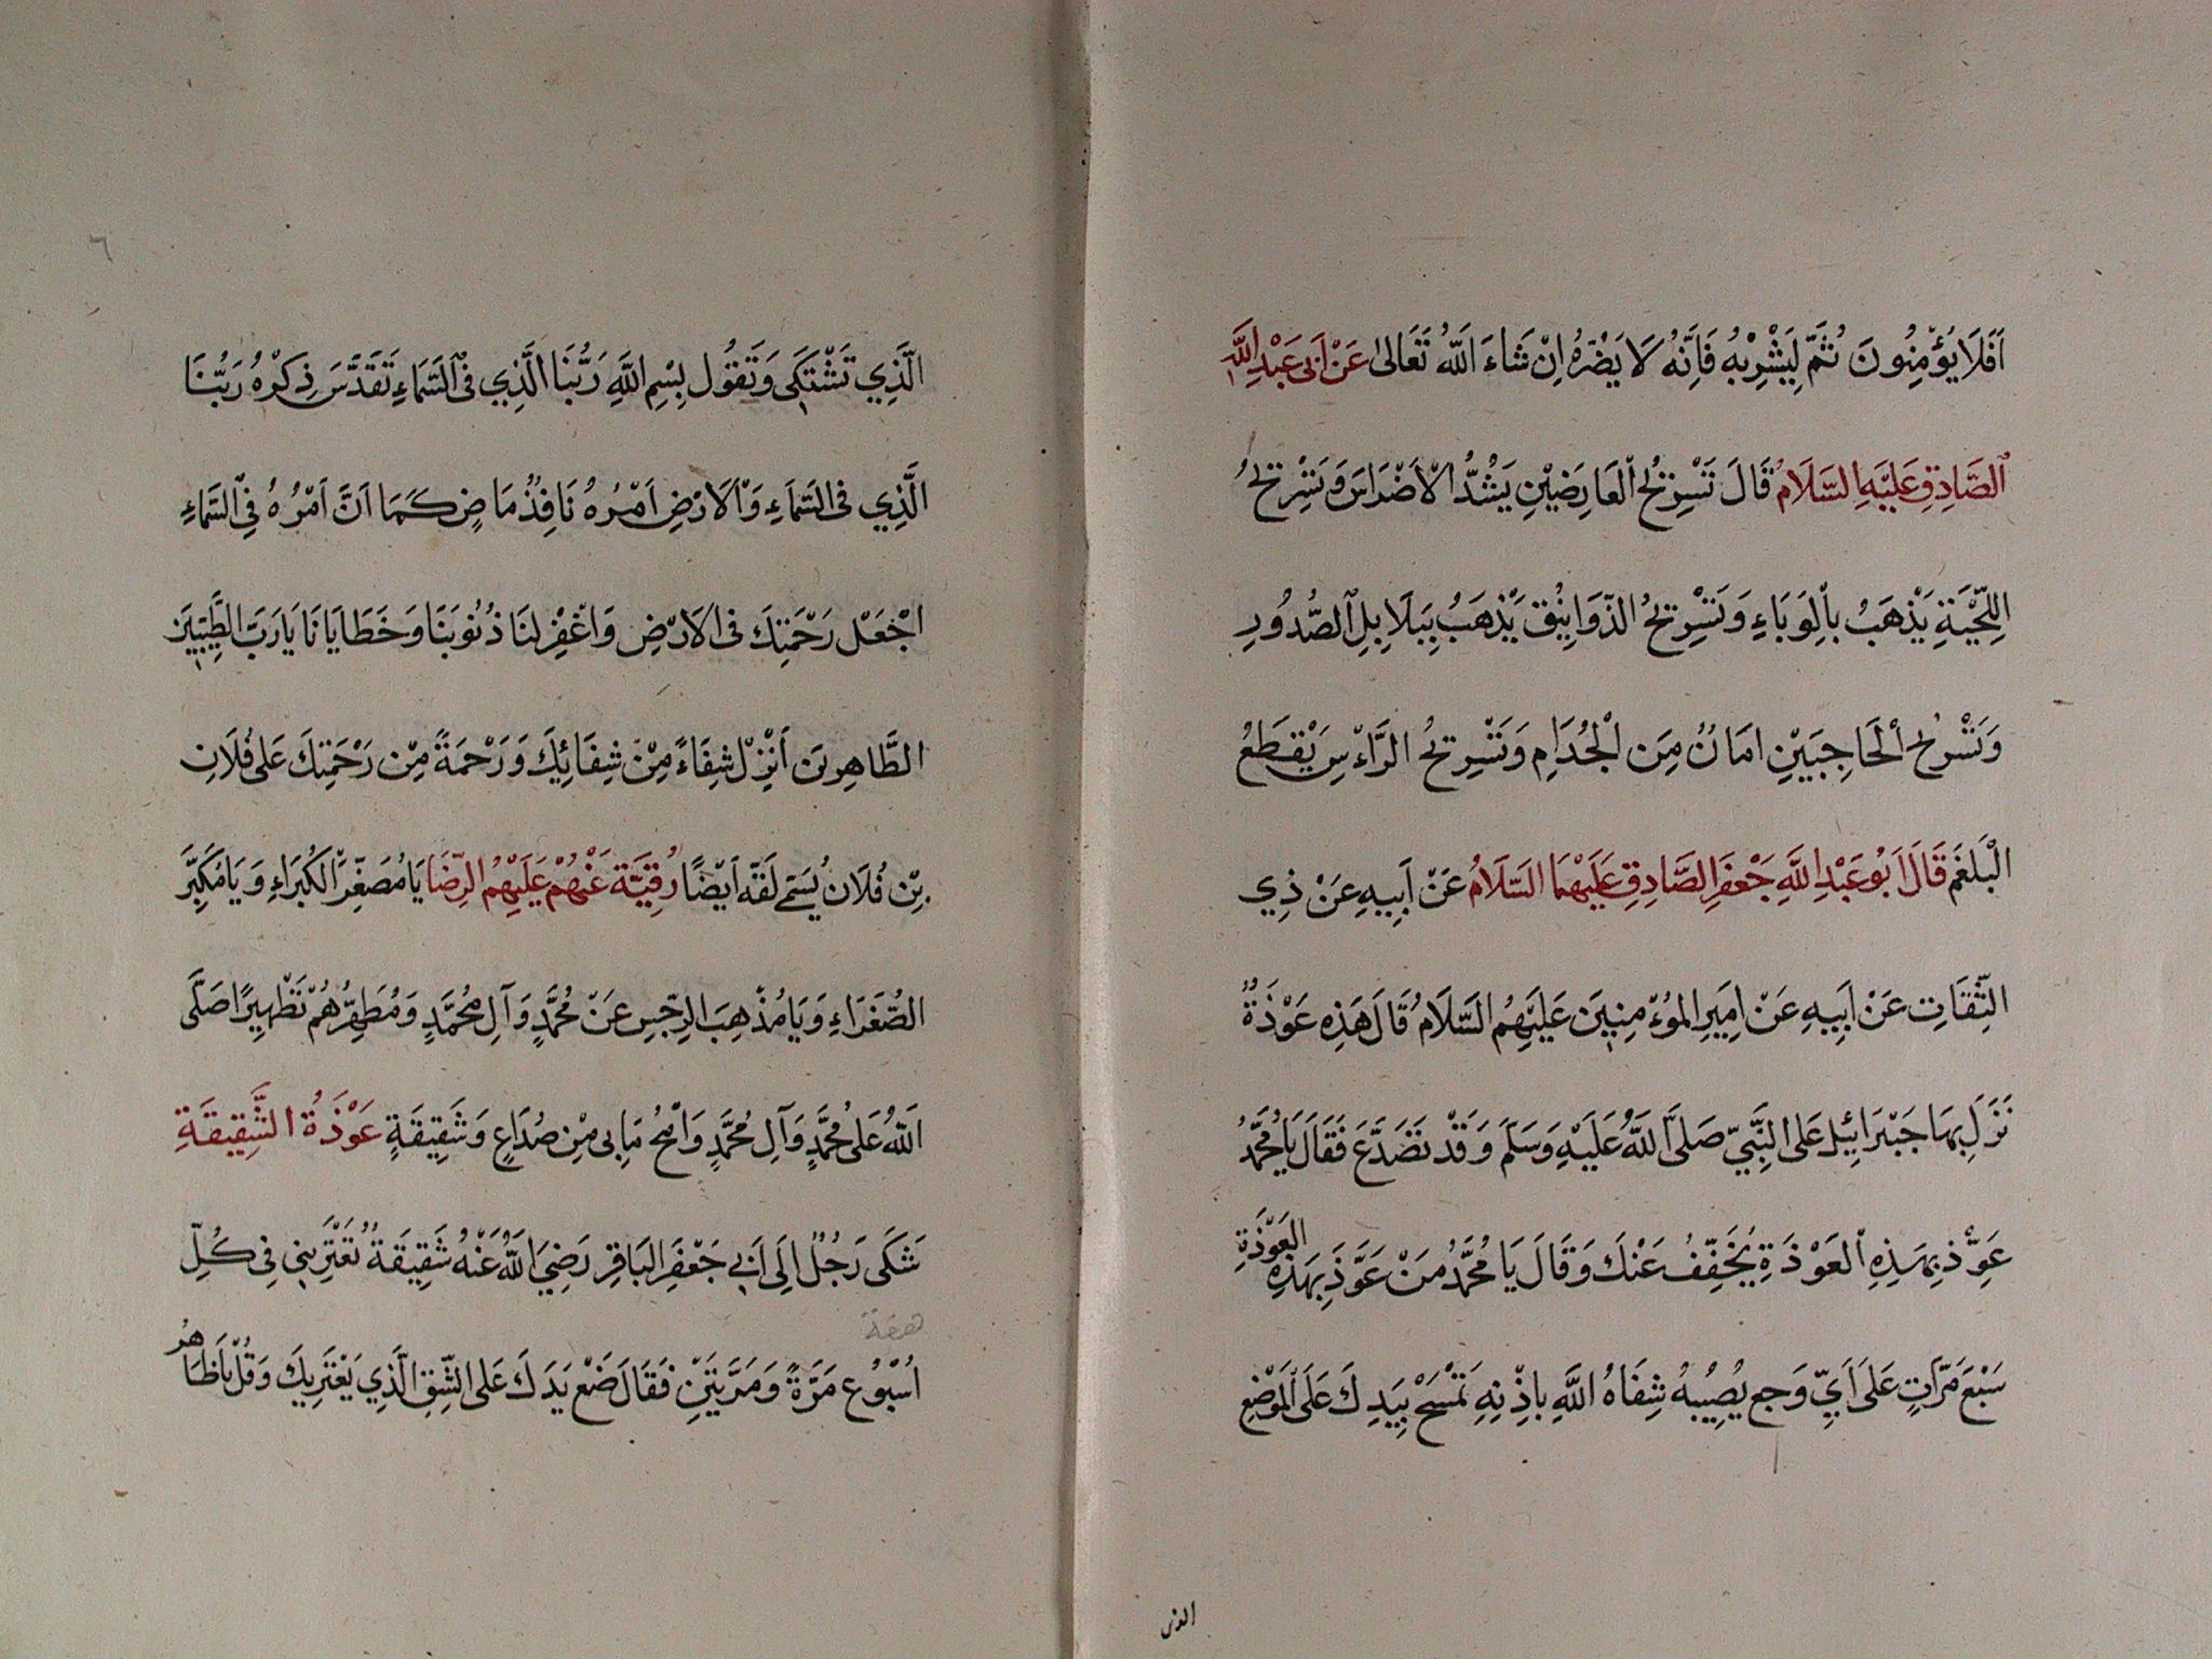 اَفَلَا يُؤْمِنُونَ ثُمَّ لِيَشْرِبْهُ فَاِنَّهُ لَا يَضُرُّهُ اِنْ شَاءَ اَللّٰهُ تَعَالىٰ عَنْ اَبِى عَبْدِ اللّٰهِ
اَلصَّادِقِ عَلَيْهِ السَّلَامُ قَالَ تَسْرِيحُ الْعَارِضَيْنِ يَشُدُّ الْاَضْرَاسَ وَتَسْرِيحُ
اللِّحْيَةِ يَذْهَبُ بِالْوَبَاءِ وَتَسْرِيحُ الذَّوَائِبِ يَذْهَبُ بِبَلَابِلِ الصُّدُورِ
وَتَسْرِيحُ الْحَاجِبَيْنِ اَمَانٌ مِنَ الْجُذَامِ وَتَسْرِيحُ الرَّاْسِ يَقْطَعُ
الْبَلْغَمَ قَالَ اَبُو عَبْدِ اللّٰهِ جَعْفَرِ الصَّادِقِ عَلَيْهِمَا السَّلَامُ عَنْ اَبِيهِ عَنْ ذِي
الثَّقَاتِ عَنْ اَبِيهِ عَنْ اَمِيرِ الْمُؤْمِنِينَ عَلَيْهِمُ السَّلَامُ قَالَ هَذِهِ عَوْذَةٌ
نَزَلَ بِهَا جَبْرَائِيلُ عَلَى النَّبِيِّ صَلَّى اللّٰهُ عَلَيْهِ وَسَلَّمَ وَقَدْ تَصَدَّعَ فَقَالَ يَا مُحَمَّدُ
عَوِّذْ بِهَذِهِ الْعَوْذَةِ يُخَفَّفُ عَنْكَ وَقَالَ يَا مُحَمَّدُ مَنْ عَوَّذَ بِهَذِهِ الْعَوْذَةِ
سَبْعَ مَرَّاتٍ عَلَى اَيِّ وَجَعٍ يُصِيبُهُ شِفَاهُ اللّٰهِ بِاِذْنِهِ تَمْسَحُ بِيَدِكَ عَلَى الْمَوْضِعِ
الذى
٦
الَّذِي تَشْتَكِى وَتَقُولُ بِسْمِ اللّٰهِ رَبُّنَا الَّذِي فِى السَّمَاءِ تَقَدَّسَ ذِكْرُهُ رَبُّنَا
الَّذِي فِى السَّمَاءِ وَالْاَرْضِ اَمْرُهُ نَافِذٌ مَاضٍ كَمَا اَنَّ اَمْرُهُ فِى السَّمَاءِ
اجْعَلْ رَحْمَتِكَ فِى الْاَرْضِ وَاغْفِرْ لَنَا ذُنُوبَنَا وَخَطَايَانَا يَا رَبَّ الطَّيِّبِينَ
الطَّاهِرِينَ اَنْزِلْ شِفَاءً مِنْ شِفَائِكَ وَرَحْمَةً مِنْ رَحْمَتِكَ عَلَى فُلَانِ
بْنِ فُلَانٍ يُسَمِّى لَفَّهُ اَيْضًا رُقِيَّة عَنْهُمْ عَلَيْهِمُ الرِّضَا يَا مُصَغِّرَ الْكُبَرَاءِ وَيَا مُكَبِّرَ
الصُّغَرَاءِ وَيَا مُذْهِبَ الرِّجْسِ عَنْ مُحَمَّدٍ وَآلِ مُحَمَّدٍ وَمُطَهِّرُهُمْ تَطْهِيرًا صَلَّى
اللّٰهُ عَلَى مُحَمَّدٍ وَآلِ مُحَمَّدٍ وَامْحُ مَا بِى مِنْ صُدَاعٍ وَشَقِيقَةٍ عَوْذَةُ الشَّقِيقَةِ
شَكَى رَجُلٌ اِلَى اَبِي جَعْفَرِ الْبَاقِرِ رَضِيَ اللّٰهُ عَنْهُ شَقِيقَةٌ تَعْتَرِينِى فِى كُلِّ
اُسْبُوعٍ مَرَّةً وَمَرَّتَيْنِ فَقَالَ ضَعْ يَدَكَ عَلَى الشِّقِّ الَّذِي يَعْتَرِيكَ وَقُلْ يَا ظَاهُر